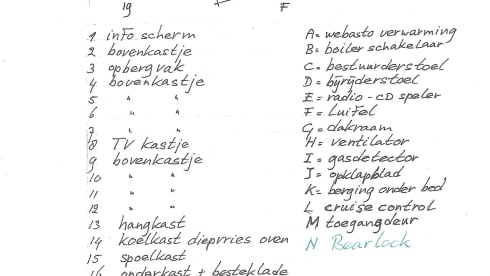 19 F
1 info scherm
2 bovenkastje
3 opbergvak
4 bovenkastje
5 " "
6 " "
7 " "
8 TV kastje
9 bovenkastje
10 " "
11 " "
12 " "
13 hangkast
14 koelkast diepvries oven
15 spoelkast
16 onderkast + besteklade
A = webasto verwarming
B = boiler schakelaar
C = bestuurderstoel
D = bijrijderstoel
E = radio - CD speler
F = Luifel
G = dakraam
H = ventilator
I = gasdetector
J = opklapblad
K = berging onder bed
L cruise control
M toegangdeur
N Bearlock